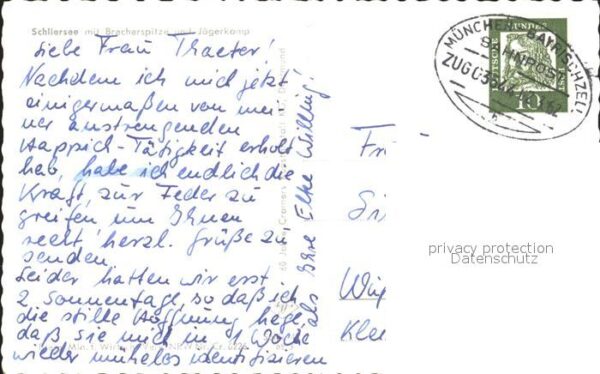 Schliersee mit Brecherspitze und Jägerkamp
Liebe Frau Thaeter!
Nachdem ich mich jetzt
einigermaßen von mei-
ner anstrengenden
Happich-Tätigkeit erholt
hab, habe ich endlich die
Kraft, zur Feder zu
greifen um Ihnen
recht herzl. Grüße zu
senden.
Leider hatten wir erst
2 Sonnentage, so daß ich
die stille Hoffnung hege,
daß sie mich in 1 Woche
wieder mühelos identifizieren
als Ihre Elke Willing!
60 Jahre Cramers
MÜNCHEN - BAYRISCHZELL
BAHNPOST
ZUG
DEUTSCHE BUNDESPOST
10
privacy protection
Datenschutz